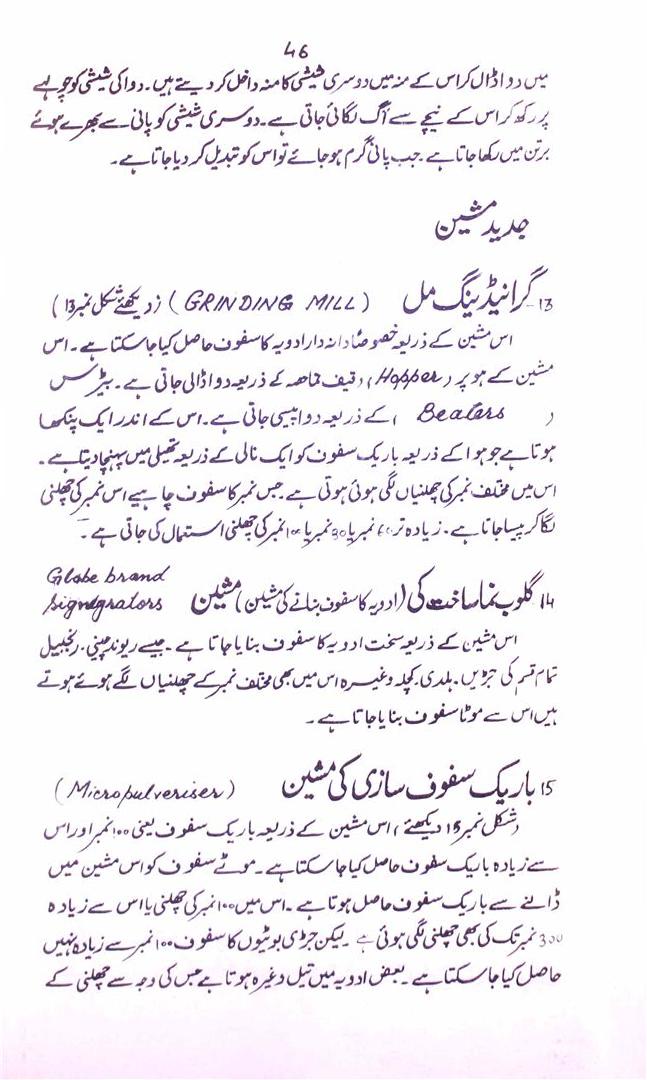 46
میں دوا ڈال کر اس کے منہ میں دوسری شیشی کا منہ داخل کر دیتے ہیں۔ دوا کی شیشی کو چولہے
پر رکھ کر اس کے نیچے سے آگ لگائی جاتی ہے۔ دوسری شیشی کو پانی سے بھرے ہوئے
برتن میں رکھا جاتا ہے جب پانی گرم ہو جائے تو اس کو تبدیل کر دیا جاتا ہے۔
جدید مشین
13۔ گرائنڈینگ مل (GRINDING MILL) (دیکھئے شکل نمبر 13)
اس مشین کے ذریعہ خصوصاً دانہ دار ادویہ کا سفوف حاصل کیا جا سکتا ہے۔ اس
مشین کے ہوپر (Hopper) کے ذریعہ دوا ڈالی جاتی ہے۔ بیٹرس
(Beaters) کے ذریعہ دوا پیسی جاتی ہے۔ اس کے اندر ایک پنکھا
ہوتا ہے جو ہوا کے ذریعہ باریک سفوف کو ایک نالی کے ذریعہ تھیلی میں پہنچا دیتا ہے۔
اس میں مختلف نمبر کی چھلنیاں لگی ہوئی ہوتی ہے۔ جس نمبر کا سفوف چاہیے اس نمبر کی چھلنی
لگا کر پیسا جاتا ہے۔ زیادہ تر نمبر یا نمبر یا نمبر کی چھلنی استعمال کی جاتی ہے۔
14 گلوب نما ساخت کی (ادویہ کا سفوف بنانے کی مشین) مشین Globe brand
اس مشین کے ذریعہ سخت ادویہ کا سفوف بنایا جاتا ہے۔ جیسے ریوند چینی۔ زنجبیل
تمام قسم کی جڑیں۔ ہلدی۔ کچلہ وغیرہ اس میں بھی مختلف نمبر کے چھلنیاں لگے ہوئے ہوتے
ہیں اس سے موٹا سفوف بنایا جاتا ہے۔
15 باریک سفوف سازی کی مشین (Micropulveriser)
(شکل نمبر 15 دیکھئے) اس مشین کے ذریعہ باریک سفوف یعنی ۱۰۰ نمبر اور اس
سے زیادہ باریک سفوف حاصل کیا جا سکتا ہے۔ موٹے سفوف کو اس مشین میں
ڈالنے سے باریک سفوف حاصل ہوتا ہے۔ اس میں ۱۰۰ نمبر کی چھلنی یا اس سے زیادہ
300 نمبر تک کی بھی چھلنی لگی ہوئی ہے لیکن جڑی بوٹیوں کا سفوف ۱۰۰ نمبر سے زیادہ نہیں
حاصل کیا جا سکتا ہے۔ بعض ادویہ میں تیل وغیرہ ہوتا ہے جس کی وجہ سے چھلنی کے